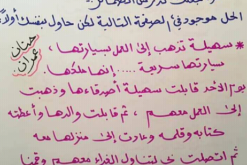 الحل موجود في أم الصفحة التالية لكن حاول بنفسك أولاً
حنان عمران
* سهيلة تذهب إلى العمل بسيارتها،
سيارتها سريعة ..... إنها ملكها.
يوم الأحد قابلت سهيلة أصدقاءها وذهبت
إلى العمل معهم، ثم قابلت والدها وأعطته
كتابه وقلمه وعادت إلى منزلها معه
ثم اتصلت بي لتناول الغداء معهم وقمنا